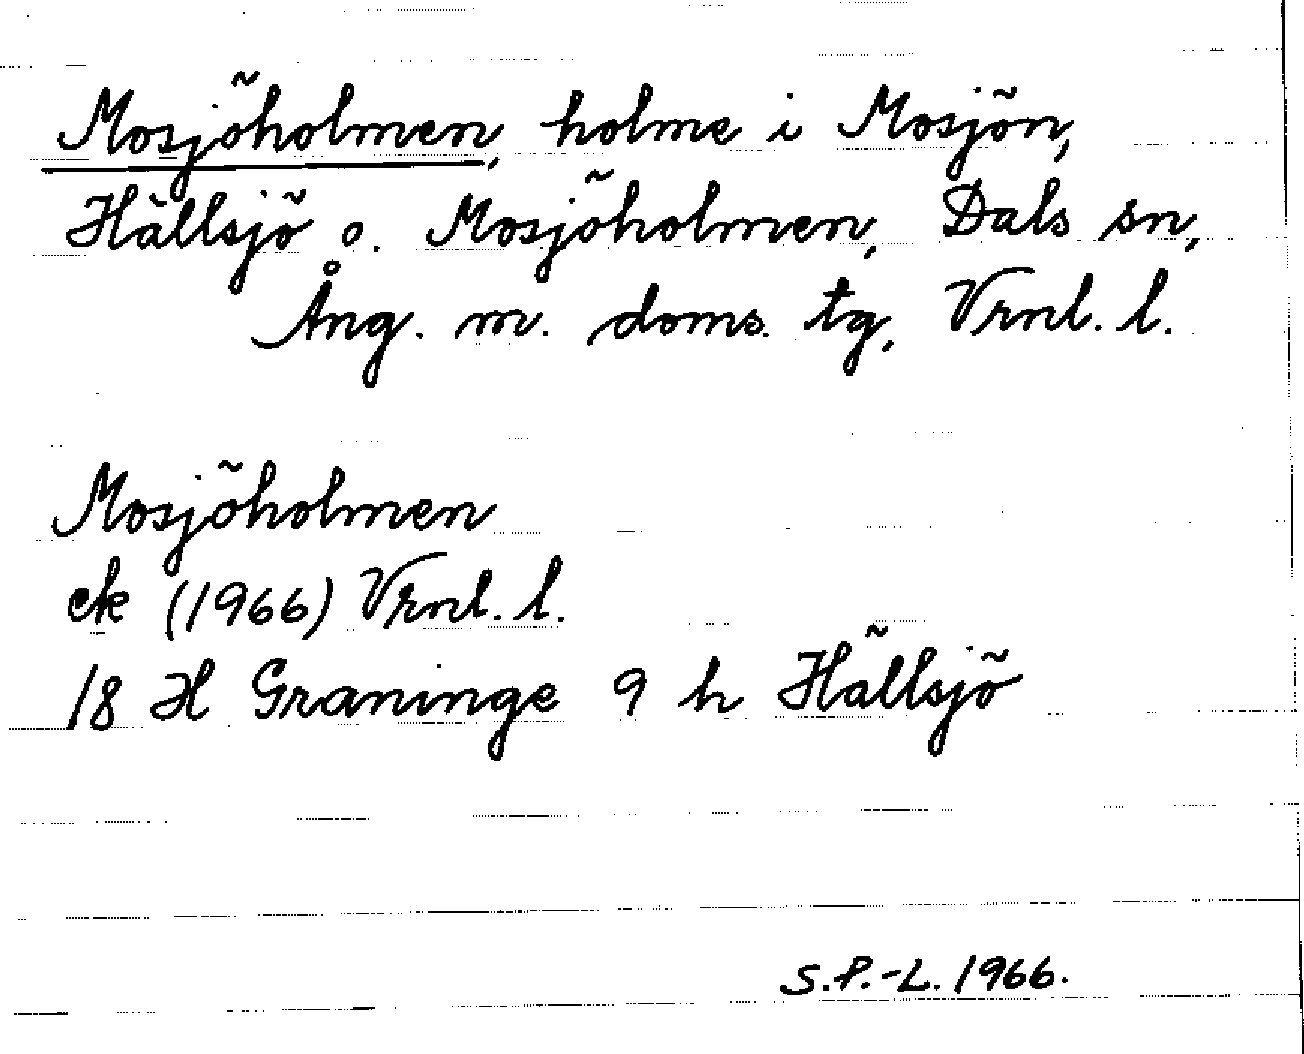 Mosjöholmen, holme i Mosjön,
Hällsjö o. Mosjöholmen, Dals sn,
Ång. m. doms. tg, Vrnl. l.
Mosjöholmen
ek (1966) Vrnl. l.
18 H Graninge 9 h Hällsjö
S.P.-L. 1966.